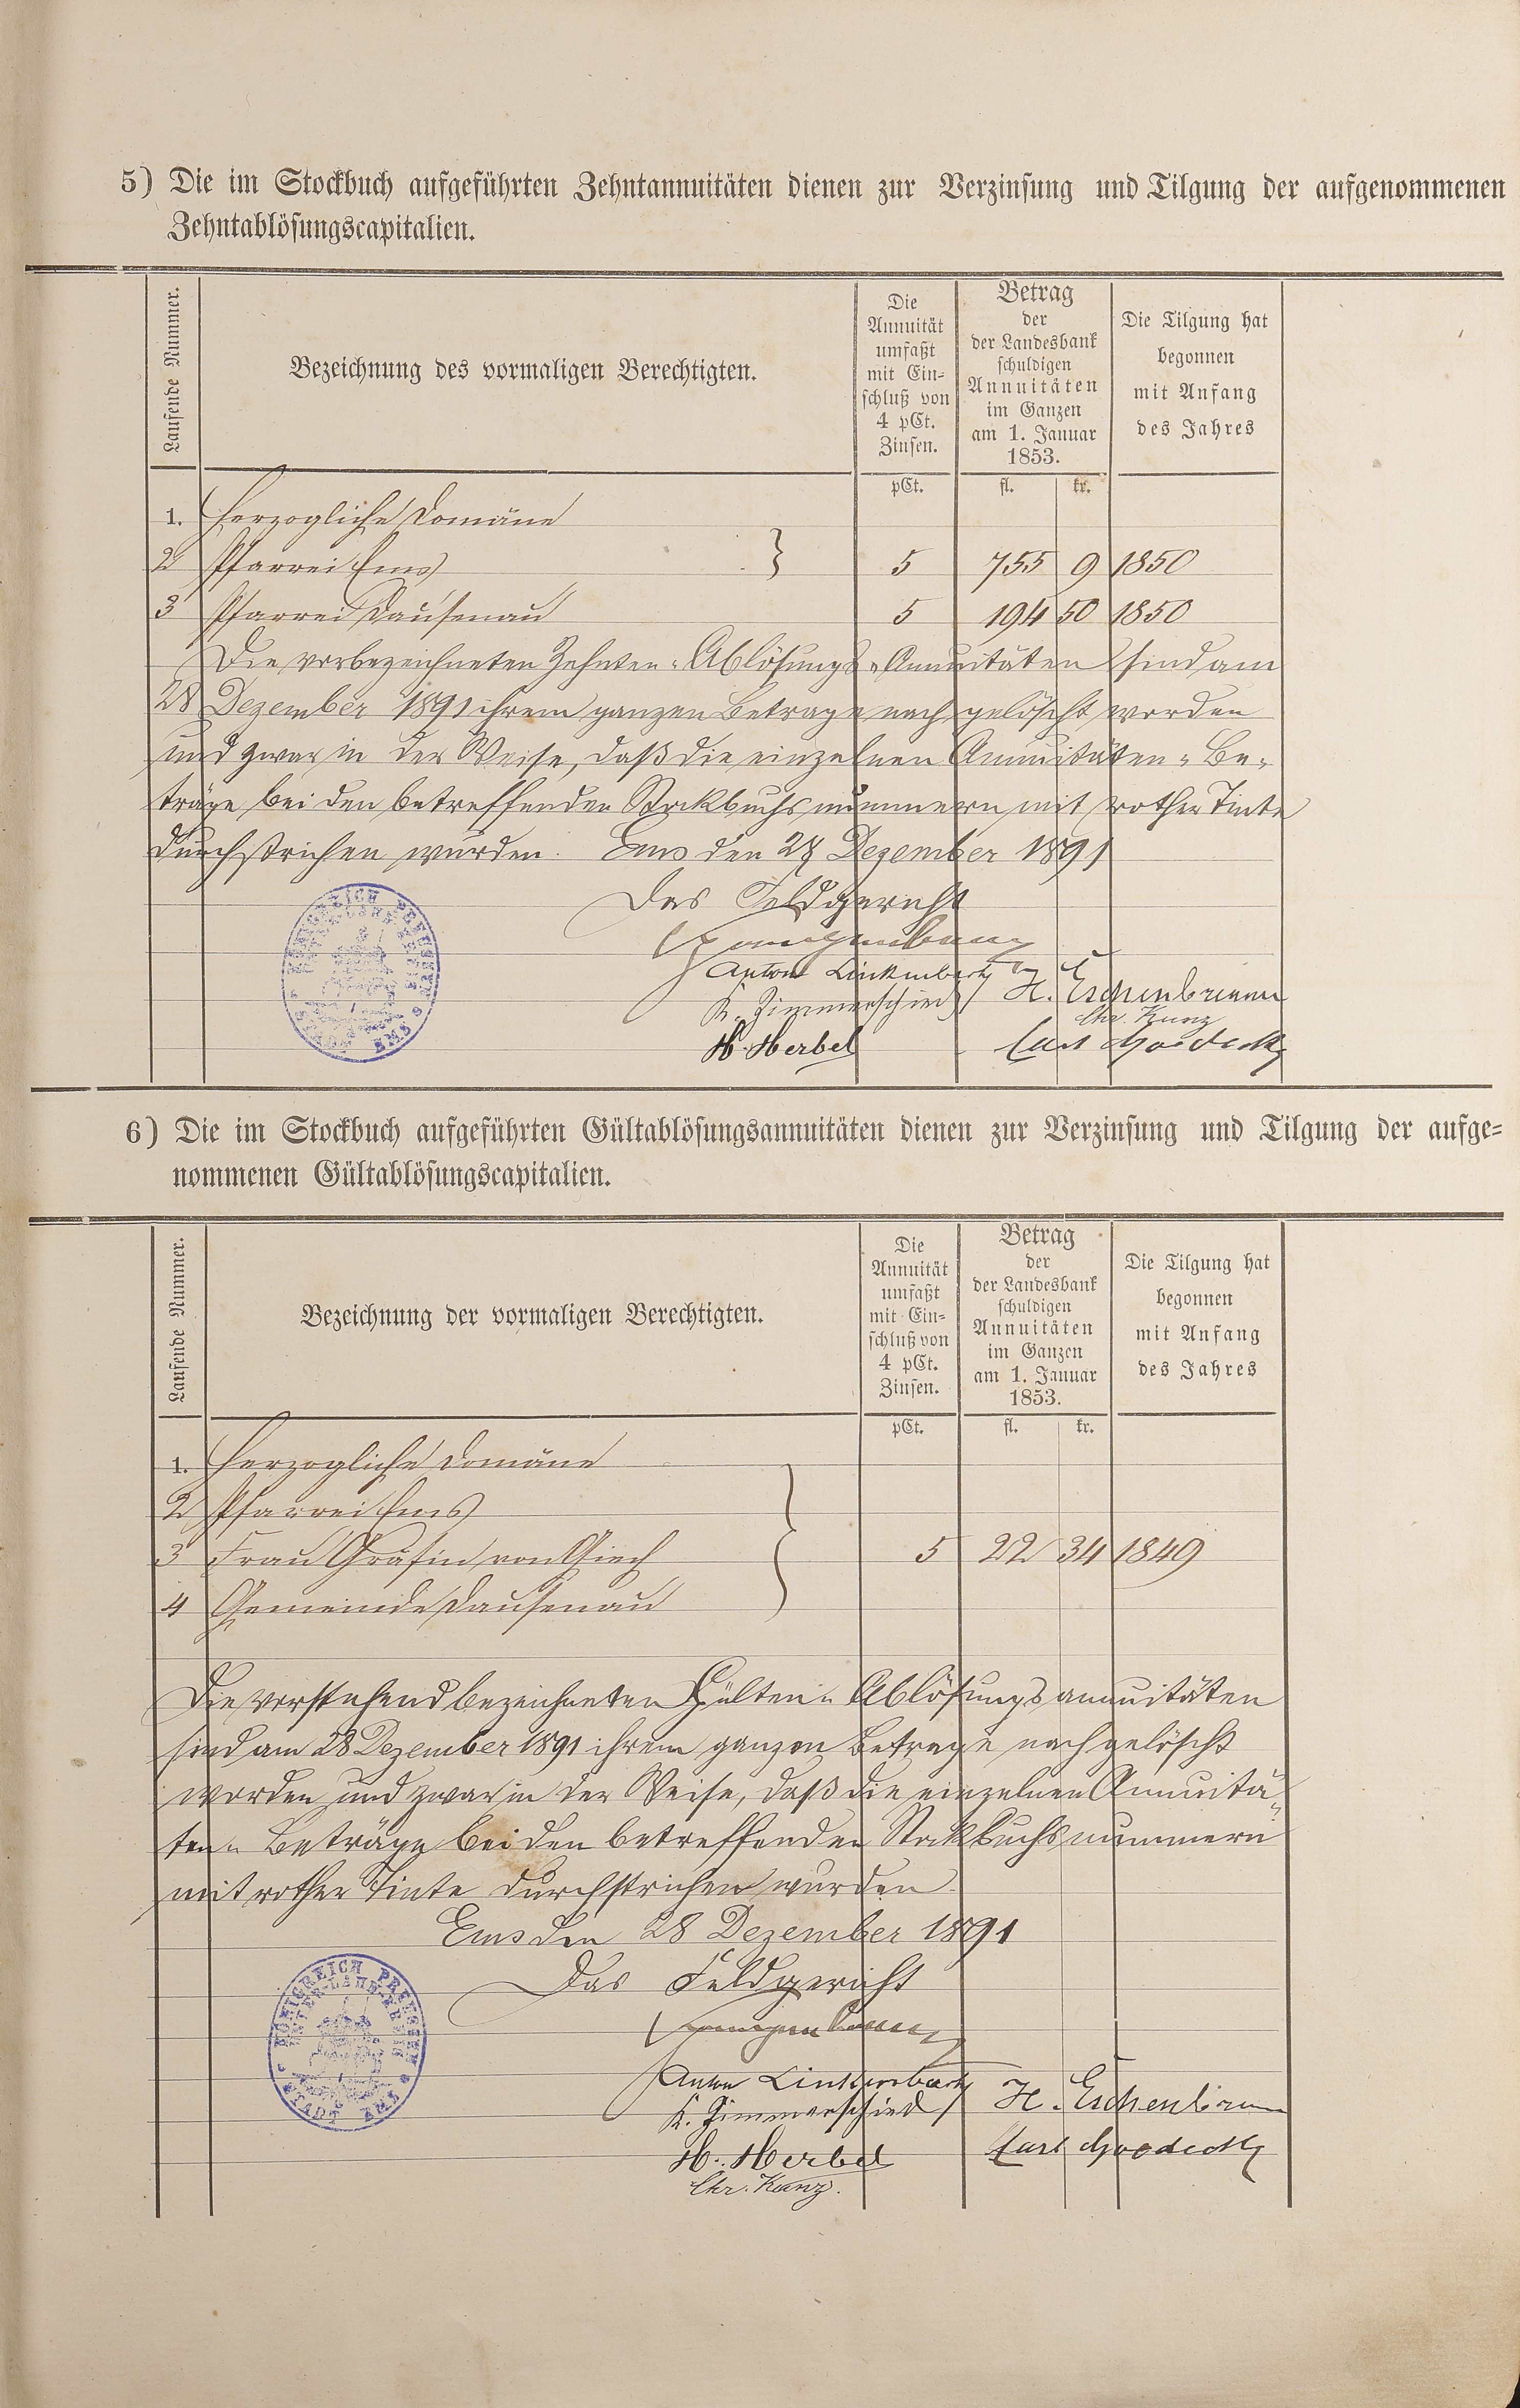 5) Die im Stockbuch aufgeführten Zehntannuitäten dienen zur Verzinsung und Tilgung der aufgenommenen
Zehntablösungscapitalien.
Laufende Nummer.
Bezeichnung des vormaligen Berechtigten.
Die
Annuität
umfaßt
mit Ein-
schluß von
4 pCt.
Zinsen.
Betrag
der
der Landesbank
schuldigen
Annuitäten
im Ganzen
am 1. Januar
1853.
Die Tilgung hat
begonnen
mit Anfang
des Jahres
pCt. fl. kr.
1. Herzogliche Domäne
2 Pfarrei Ems } 5 755 9 1850
3 Pfarrei Dausenau 5 194 50 1850
Die vorbezeichneten Zehnten-Ablösungs-Annuitäten sind am
28 Dezember 1891 ihrem ganzen Betrage nach gelöscht worden
und zwar in der Weise, daß die einzelnen Annuitäten-Be-
träge bei den betreffenden Stockbuchsnummern mit rother Tinte
durchstrichen wurden. Ems den 28 Dezember 1891
Das Feldgericht
Anton Linkenbach
K. Zimmerschied H. Eschenbrenner
Chr. Kunz
H. Herbel Carl
KÖNIGREICH PREUSSEN
STADT EMS
6) Die im Stockbuch aufgeführten Gültablösungsannuitäten dienen zur Verzinsung und Tilgung der aufge-
nommenen Gültablösungscapitalien.
Laufende Nummer.
Bezeichnung der vormaligen Berechtigten.
Die
Annuität
umfaßt
mit Ein-
schluß von
4 pCt.
Zinsen.
Betrag
der
der Landesbank
schuldigen
Annuitäten
im Ganzen
am 1. Januar
1853.
Die Tilgung hat
begonnen
mit Anfang
des Jahres
pCt. fl. kr.
1. Herzogliche Domäne
2 Pfarrei Ems
3 Frau Gräfin von Giech } 5 22 34 1849
4 Gemeinde Dausenau
Die vorstehend bezeichneten Gülten-Ablösungsannuitäten
sind am 28 Dezember 1891 ihrem ganzen Betrage nach gelöscht
worden und zwar in der Weise, daß die einzelnen Annuitä-
ten-Beträge bei den betreffenden Stockbuchsnummern
mit rother Tinte durchstrichen wurden.
Ems den 28 Dezember 1891
Das Feldgericht
Anton Linkenbach
K. Zimmerschied H. Eschenbrenner
H. Herbel Carl
Chr. Kunz.
KÖNIGREICH PREUSSEN
UNTER-LAHN-KREIS
STADT EMS